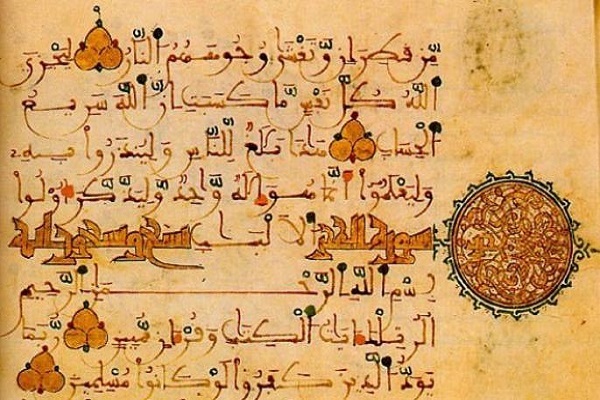 مِّن قَطِرَانٍ وَتَغْشَىٰ وُجُوهَهُمُ النَّارُ لِيَجْزِيَ
اللَّهُ كُلَّ نَفْسٍ مَّا كَسَبَتِ انَّ اللَّهَ سَرِيعُ
الْحِسَابِ هَٰذَا بَلَٰغٌ لِّلنَّاسِ وَلِيُنذَرُوا بِهِ
وَلِيَعْلَمُوا أَنَّمَا هُوَ إِلَٰهٌ وَٰحِدٌ وَلِيَذَّكَّرَ أُولُوا
سورة الحجر الْأَلْبَٰبِ تسع وتسعون اية
بِسْمِ اللَّهِ الرَّحْمَٰنِ الرَّحِيمِ
الر تِلْكَ ءَايَٰتُ الْكِتَٰبِ وَقُرْءَانٍ مُّبِينٍ رُّبَمَا
يَوَدُّ الَّذِينَ كَفَرُوا لَوْ كَانُوا مُسْلِمِينَ